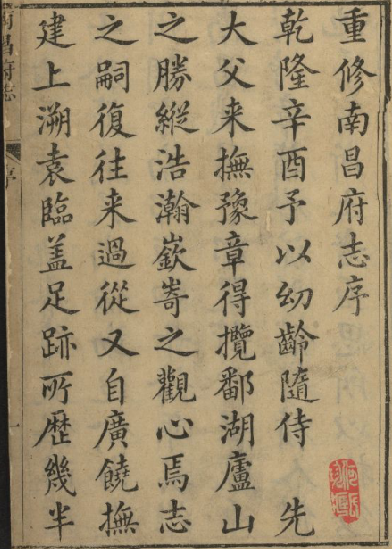 重修南昌府志序
乾隆辛酉予以幼齡隨侍 先
大父来撫豫章得攬鄱湖廬山
之勝縱浩瀚嶔崎之觀心焉志
之嗣復往来過從又自廣饒撫
建上溯袁臨盖足跡所歷幾半
南昌府志
序
一